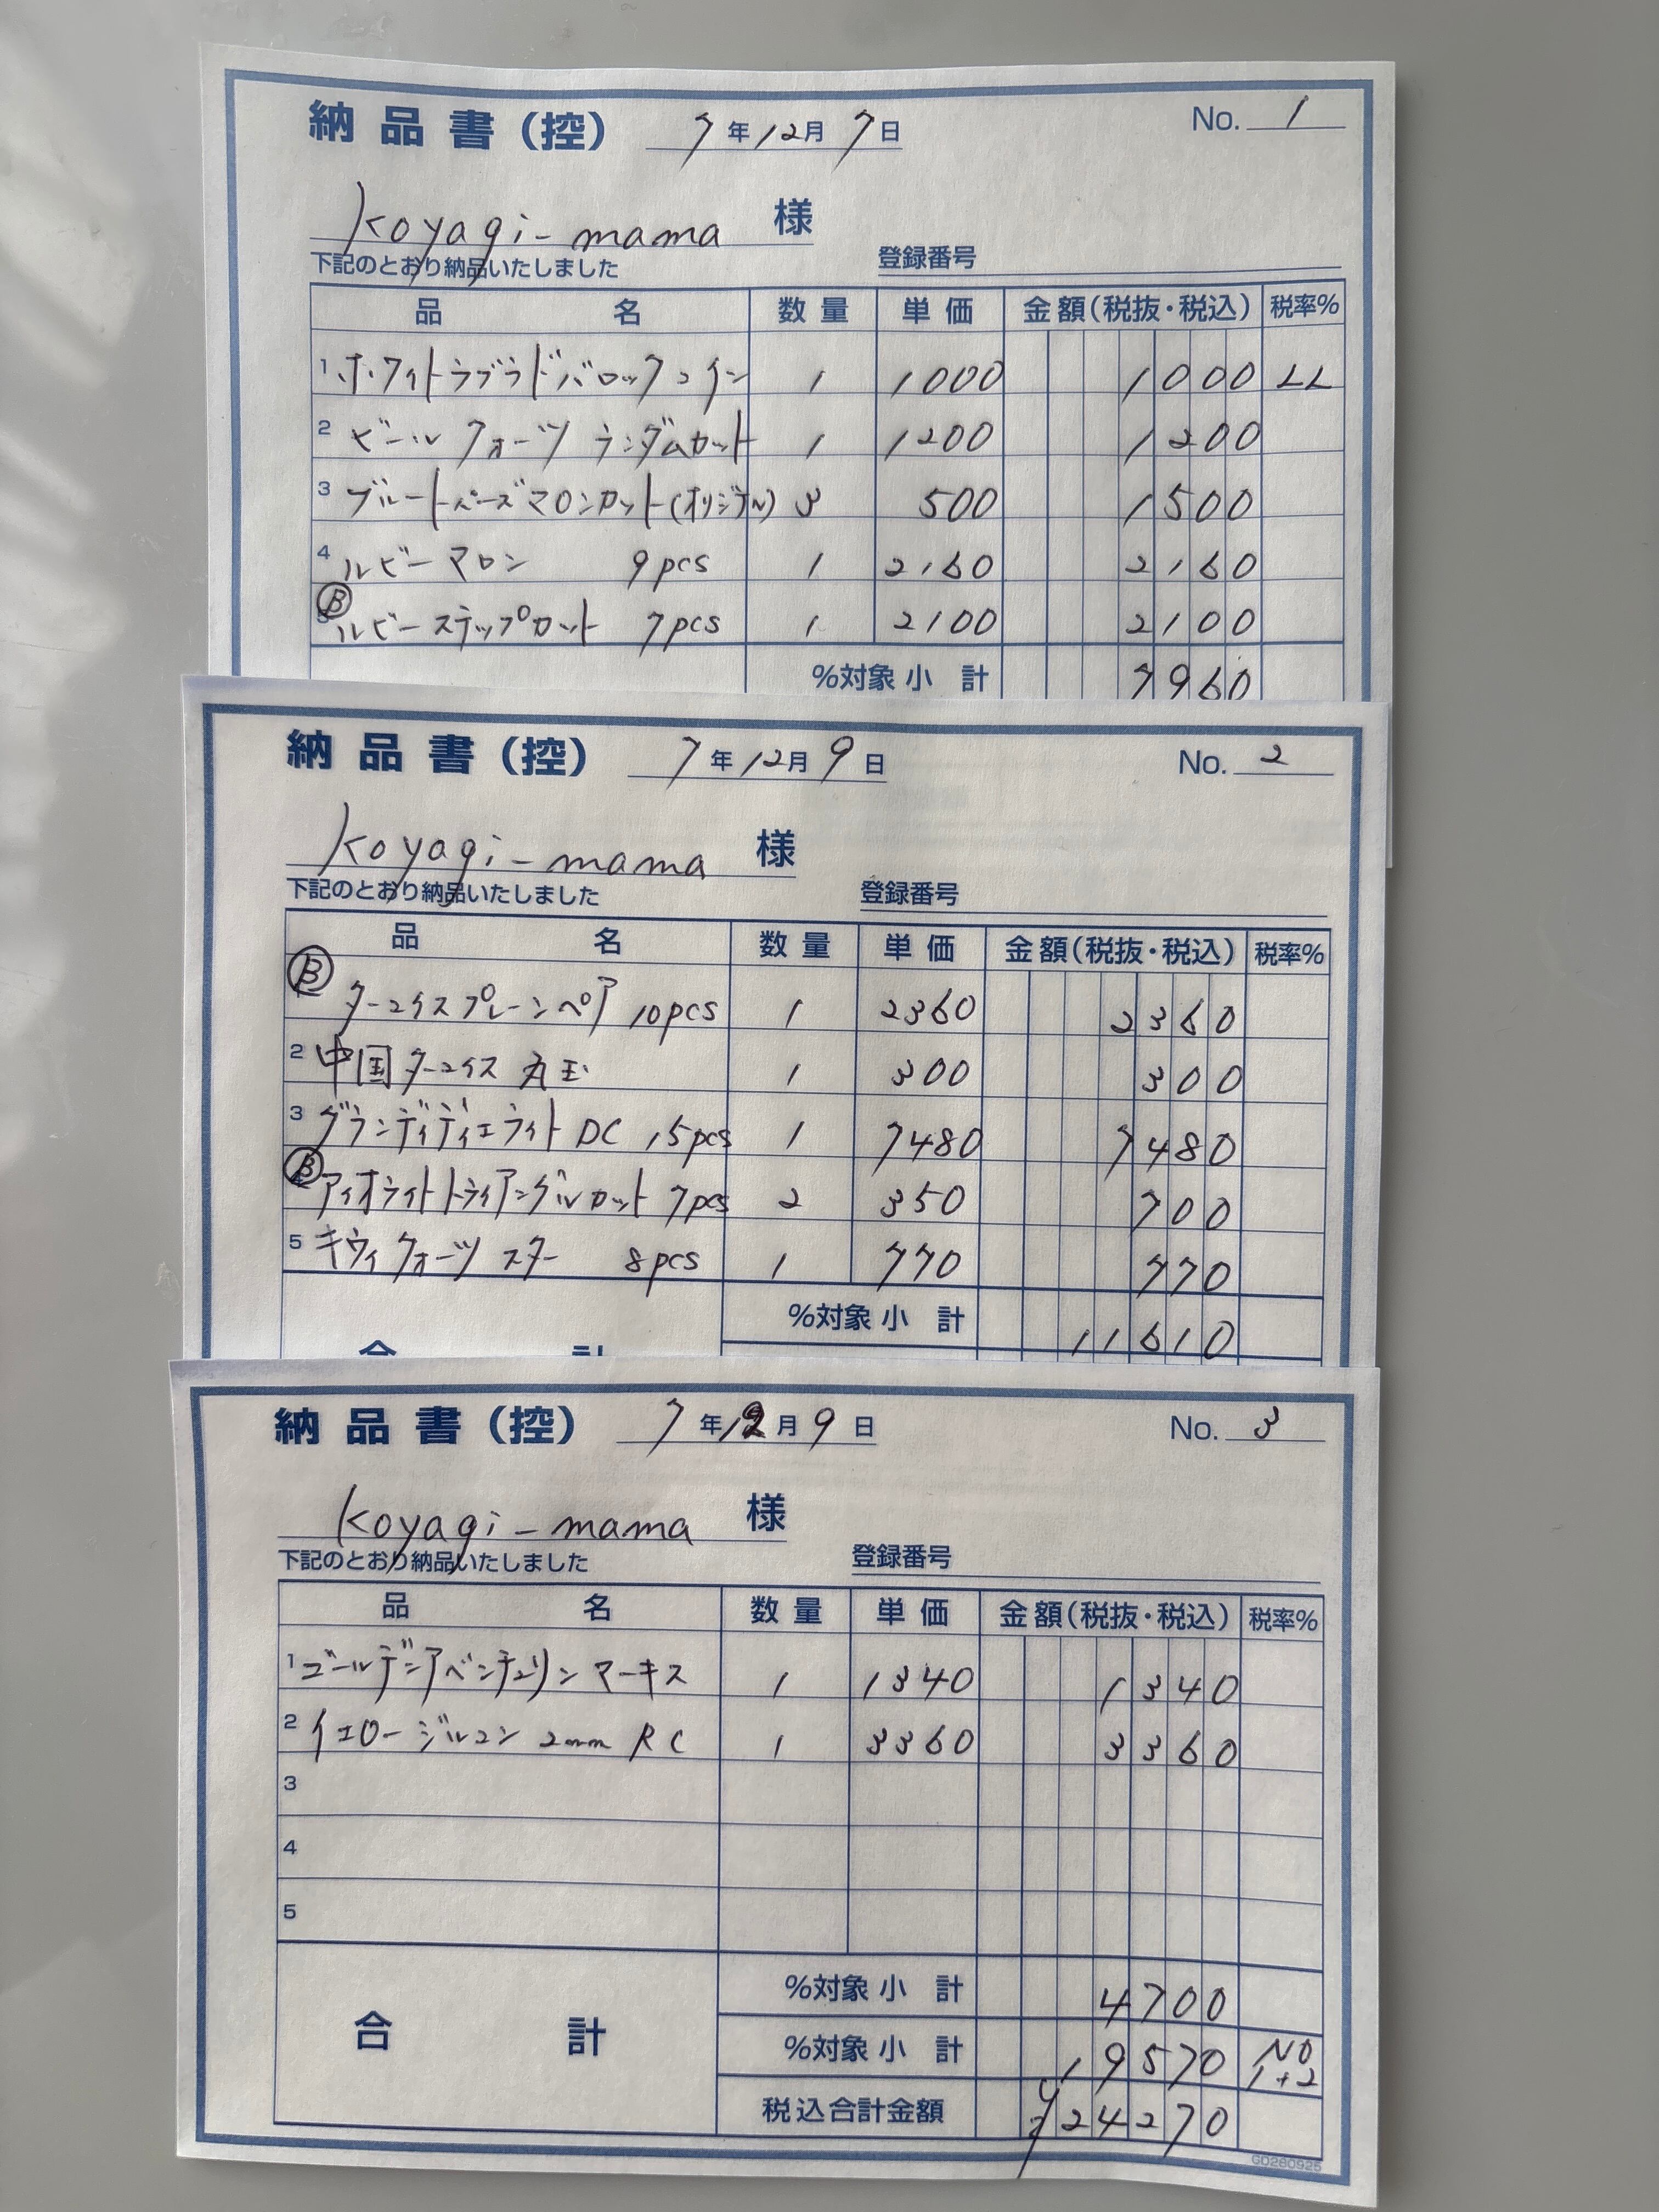 納品書(控) 7年12月7日 No. 1
Koyagi-mama 様
下記のとおり納品いたしました 登録番号
品名 数量 単価 金額(税抜・税込) 税率%
1 ホワイトラブラドバロックコイン 1 1000 1000 LL
2 ビールクォーツ ランダムカット 1 1200 1200
3 ブルートパーズマロンカット(オリジナル) 3 500 1500
4 ルビーマロン 9pcs 1 2160 2160
5 Ⓑ ルビーステップカット 7pcs 1 2100 2100
%対象小計 7960
納品書(控) 7年12月9日 No. 2
Koyagi-mama 様
下記のとおり納品いたしました 登録番号
品名 数量 単価 金額(税抜・税込) 税率%
Ⓑ ターコイスプレーンペア 10pcs 1 2360 2360
2 中国ターコイス 丸玉 1 300 300
3 グランディディエライト DC 15pcs 1 7480 7480
Ⓑ アイオライトトライアングルカット 7pcs 2 350 700
5 キウィクォーツ スター 8pcs 1 770 770
%対象小計 11610
合計
納品書(控) 7年12月9日 No. 3
Koyagi-mama 様
下記のとおり納品いたしました 登録番号
品名 数量 単価 金額(税抜・税込) 税率%
1 ゴールデンアベンチュリン マーキス 1 1340 1340
2 イエロージルコン 2mm RC 1 3360 3360
3
4
5
%対象小計 4700
合計 %対象小計 19570 NO 1+2
税込合計金額 ¥24270
GD280925